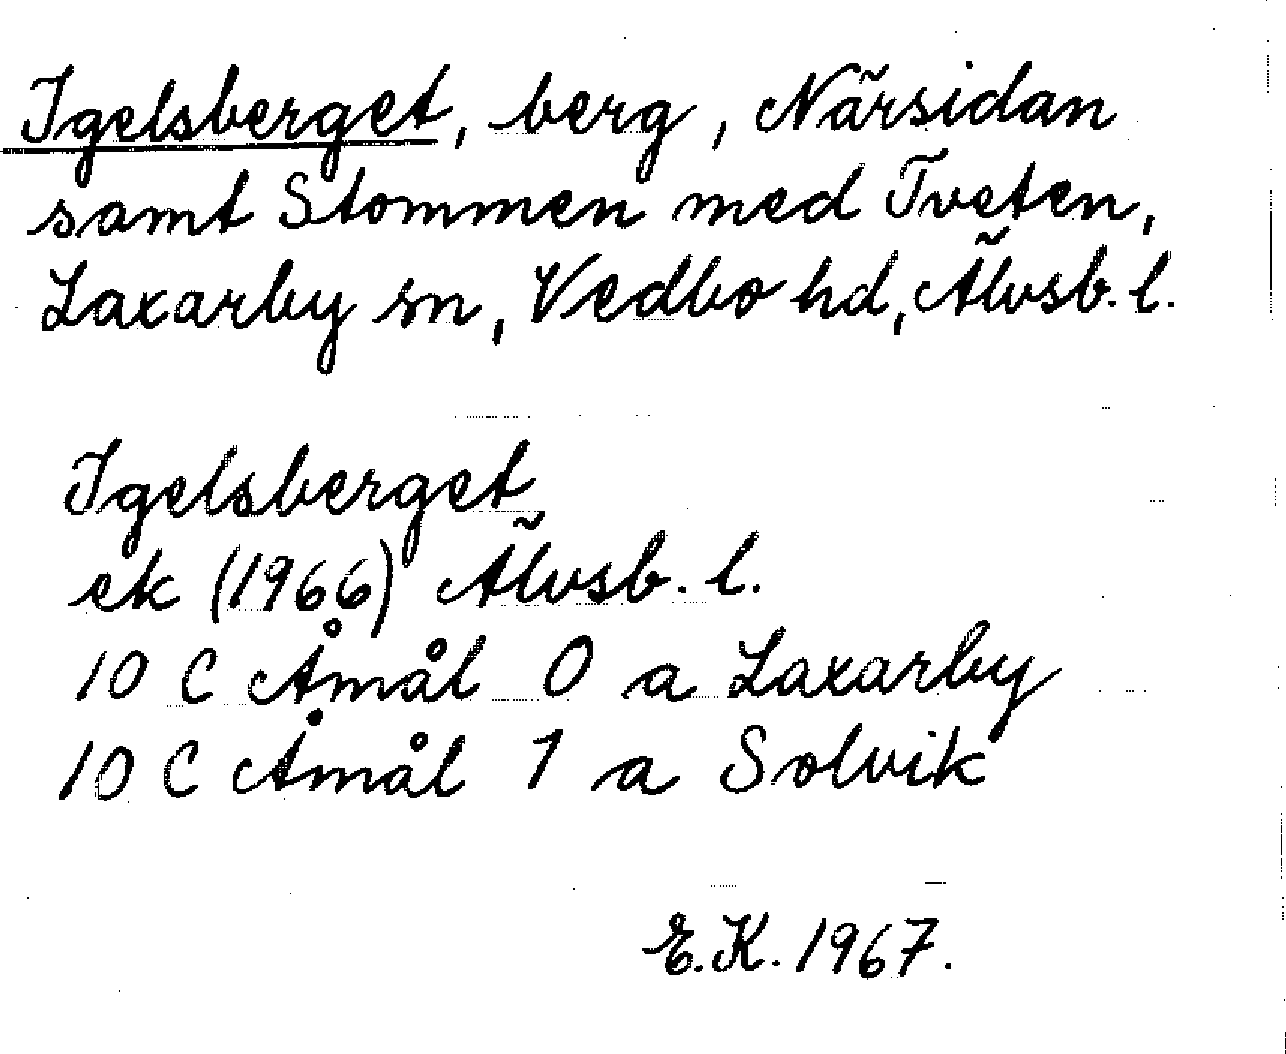 Igelsberget, berg, Närsidan
samt Stommen med Tveten,
Laxarby sn, Vedbo hd, Älvsb. l.
Igelsberget
ek (1966) Älvsb. l.
10 C Åmål 0 a Laxarby
10 C Åmål 1 a Solvik
E.K. 1967.